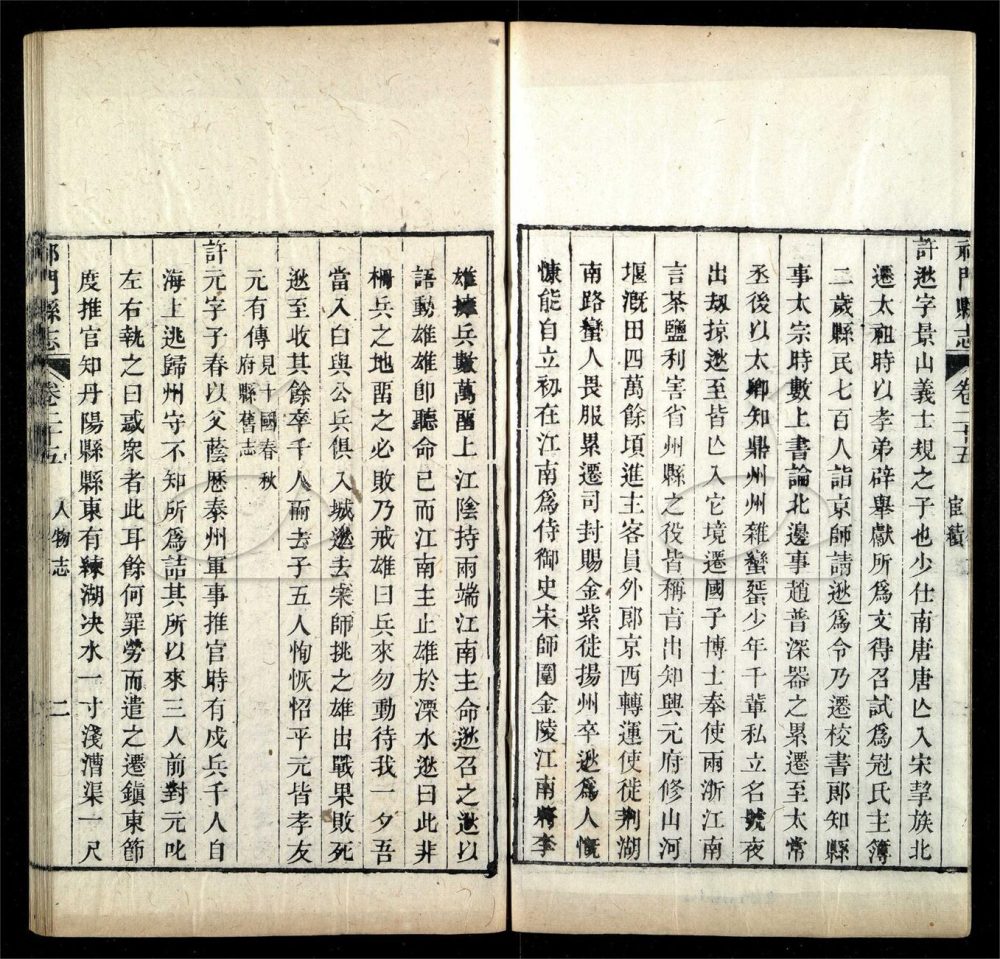 祁門縣志 卷二十五 宦績
許逖字景山義士規之子也少仕南唐唐亾入宋挈族北
遷太祖時以孝弟辟舉獻所爲文得召試爲冠氏主簿
二歲縣民七百人詣京師請逖爲令乃遷校書郎知縣
事太宗時數上書論北邊事趙普深器之累遷至太常
丞後以太卿知鼎州州雜蠻蜑少年千輩私立名號夜
出刼掠逖至皆亾入它境遷國子博士奉使兩浙江南
言茶鹽利害省州縣之役皆稱肯出知興元府修山河
堰漑田四萬餘頃進主客員外郎京西轉運使徙荆湖
南路蠻人畏服累遷司封賜金紫徙揚州卒逖爲人慨
慷能自立初在江南爲侍御史宋師圍金陵江南將李
雄擁兵數萬畱上江陰持兩端江南主命逖召之逖以
語動雄雄卽聽命已而江南主止雄於溧水逖曰此非
柵兵之地畱之必敗乃戒雄曰兵來勿動待我一夕吾
當入白與公兵俱入城逖去宋師挑之雄出戰果敗死
逖至收其餘卒千人而去子五人恂恢怊平元皆孝友
元有傳 見十國春秋府縣舊志
許元字子春以父蔭歷泰州軍事推官時有戍兵千人自
海上逃歸州守不知所爲詰其所以來三人前對元叱
左右執之曰惑衆者此耳餘何罪勞而遣之遷鎭東節
度推官知丹陽縣縣東有練湖决水一寸淺漕渠一尺
祁門縣志 卷二十五 人物志 二